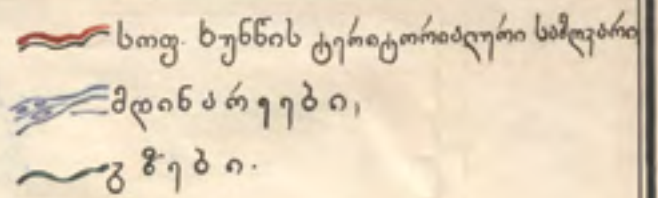 სოფ. ხუნწის ტერიტორიალური საზღვარი
მდინარეები,
გზები.